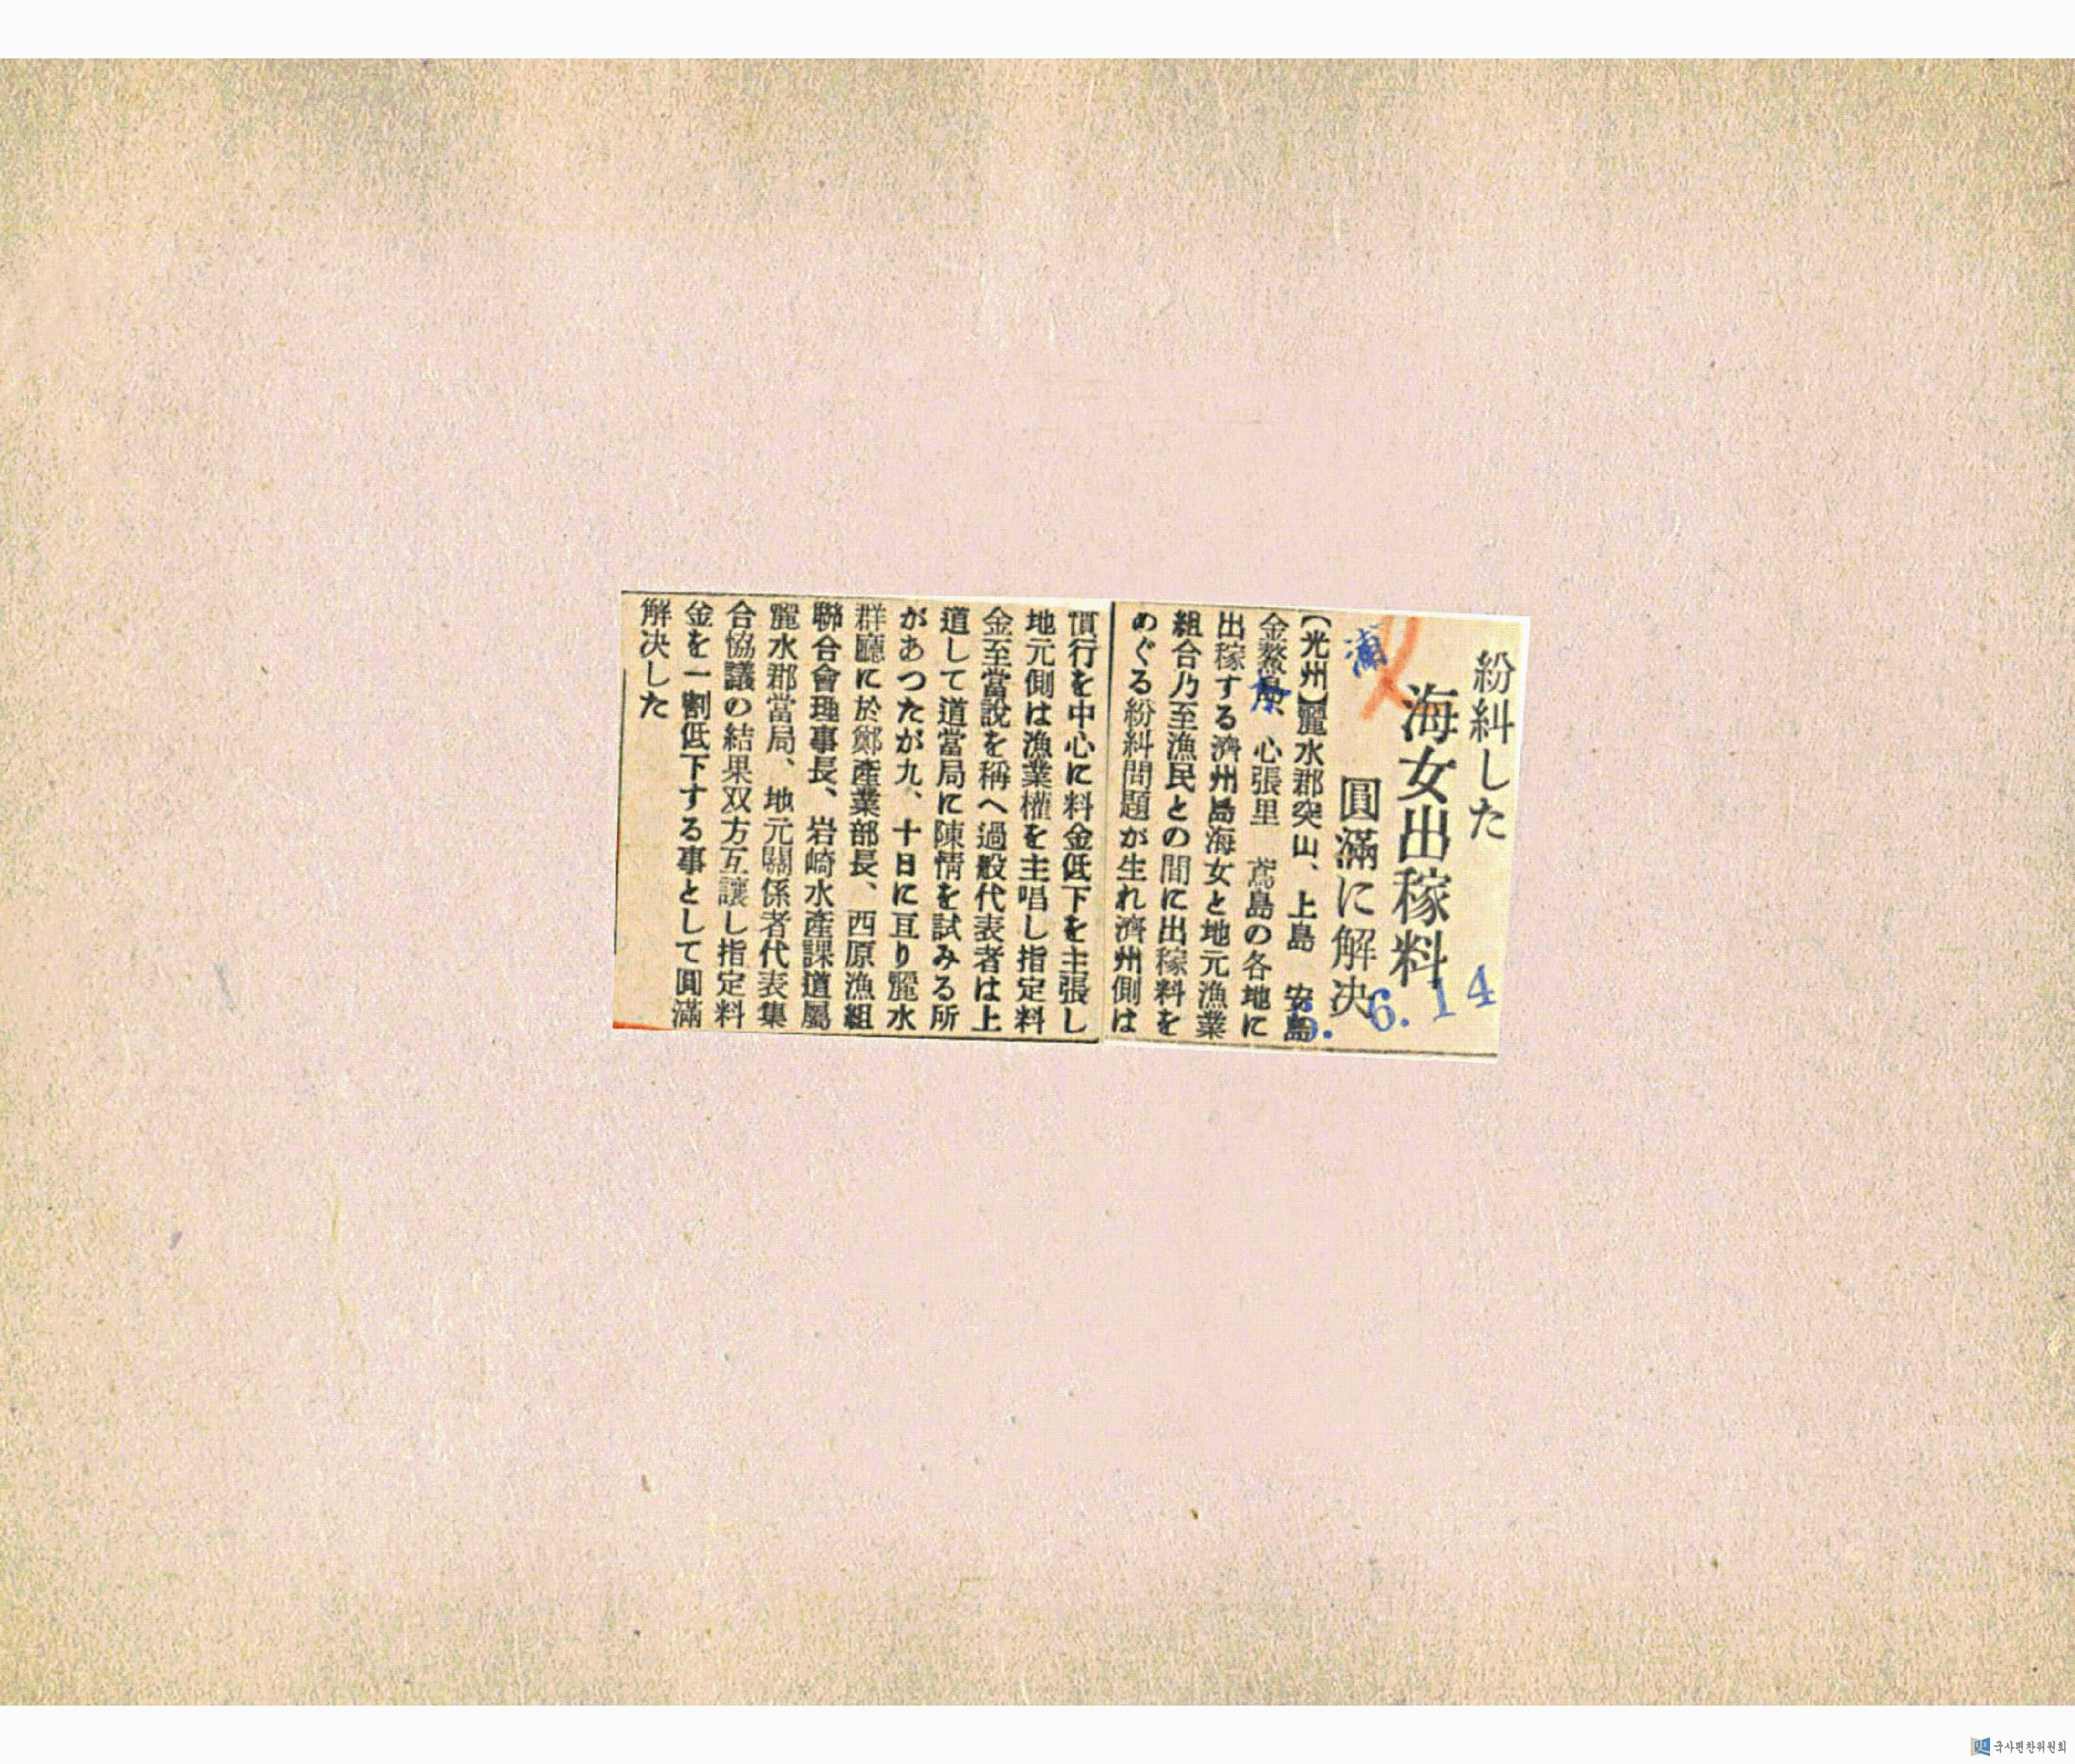 紛糾した
海女出稼料
圓滿に解決
【光州】麗水郡突山、上島 安島
金鰲島、心張里 鳶島の各地に
出稼する濟州島海女と地元漁業
組合乃至漁民との間に出稼料を
めぐる紛糾問題が生れ濟州側は
慣行を中心に料金低下を主張し
地元側は漁業權を主唱し指定料
金至當說を稱へ過般代表者は上
道して道當局に陳情を試みる所
があつたが九、十日に亘り麗水
群廳に於鄭產業部長、西原漁組
聯合會理事長、岩崎水產課道屬
麗水郡當局、地元關係者代表集
合協議の結果双方互讓し指定料
金を一割低下する事として圓滿
解決した
6. 14
국사편찬위원회